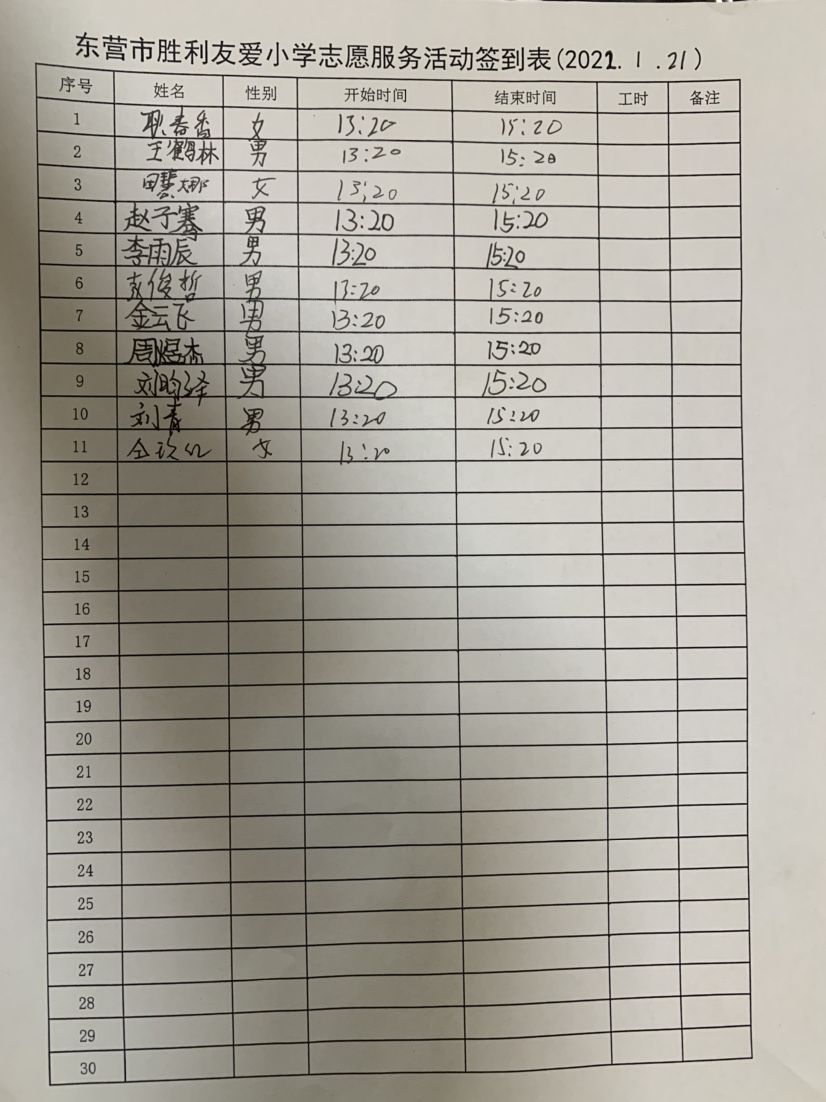 东营市胜利友爱小学志愿服务活动签到表(2022.1.21)
序号 姓名 性别 开始时间 结束时间 工时 备注
1 耿春香 女 13:20 15:20
2 王鹤林 男 13:20 15:20
3 田慧娜 女 13:20 15:20
4 赵子骞 男 13:20 15:20
5 李雨辰 男 13:20 15:20
6 袁俊哲 男 13:20 15:20
7 金云飞 男 13:20 15:20
8 周煜杰 男 13:20 15:20
9 刘昀泽 男 13:20 15:20
10 刘青 男 13:20 15:20
11 女 13:20 15:20
12
13
14
15
16
17
18
19
20
21
22
23
24
25
26
27
28
29
30